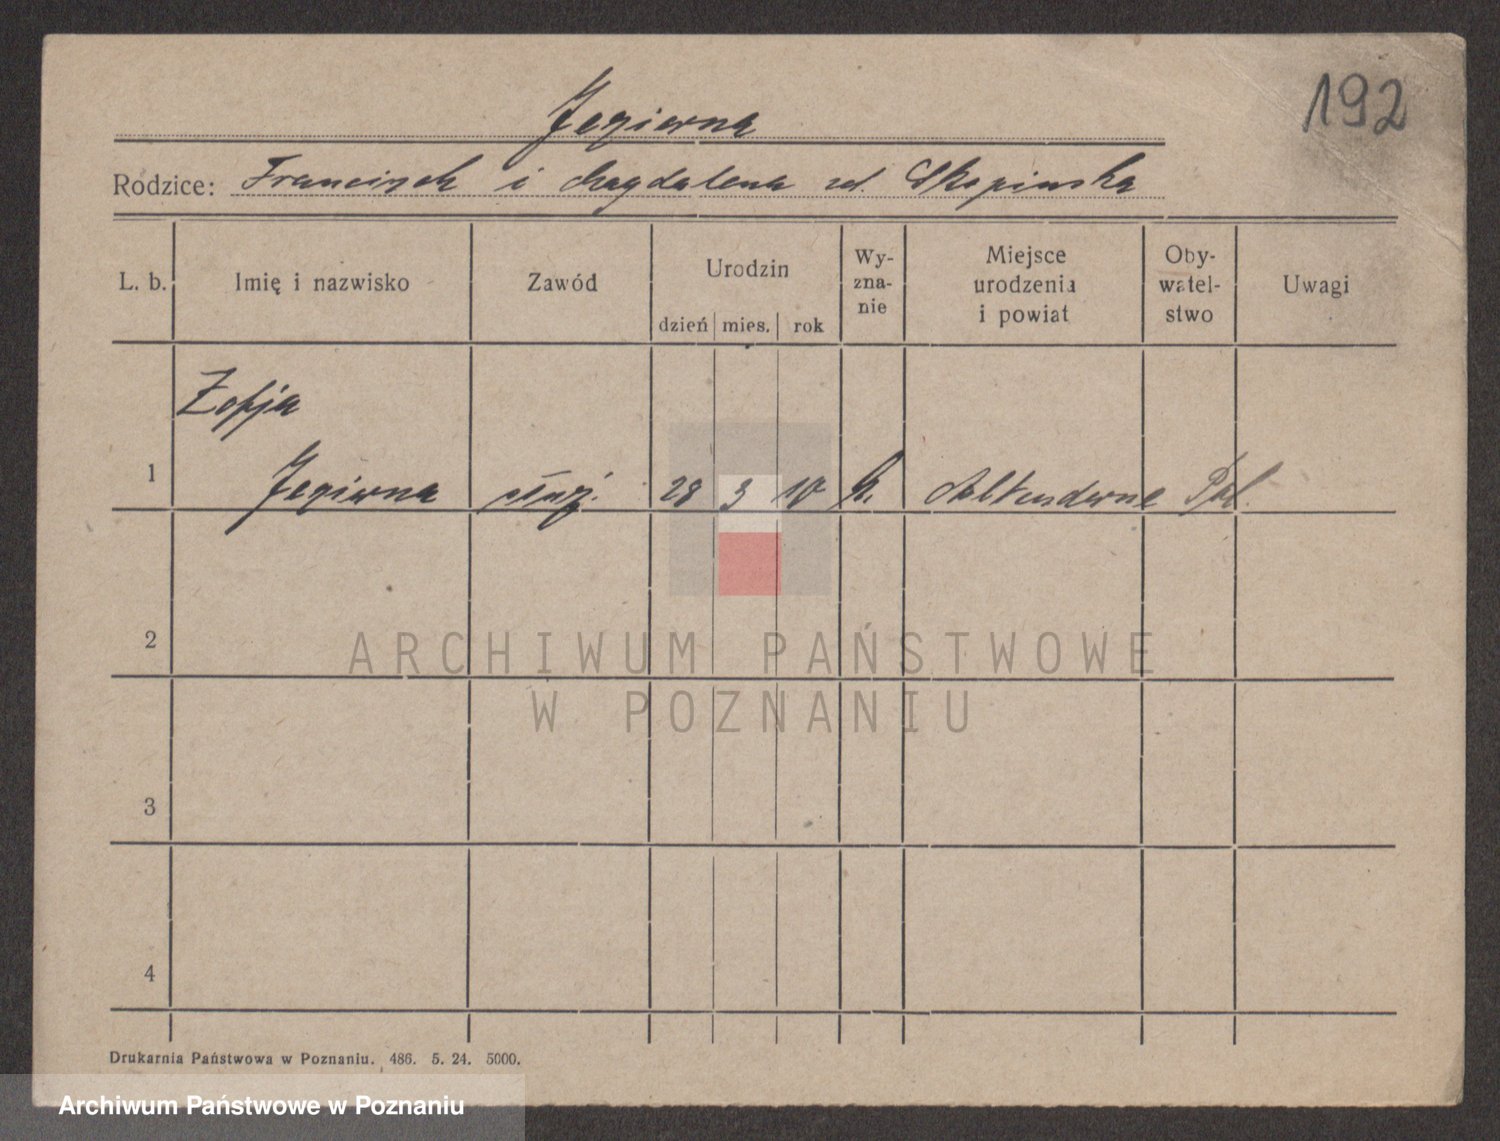 192
Jezierna
Rodzice: Franciszek i Magdalena zd. Skopinska
L. b. Imię i nazwisko Zawód Urodzin dzień mies. rok Wy-zna-nie Miejsce urodzenia i powiat Oby-watel-stwo Uwagi
Zofja
1 Jezierna służ. 28 3 10 k. Pol.
2
ARCHIWUM PAŃSTWOWE
W POZNANIU
3
4
Drukarnia Państwowa w Poznaniu. 486. 5. 24. 5000.
Archiwum Państwowe w Poznaniu